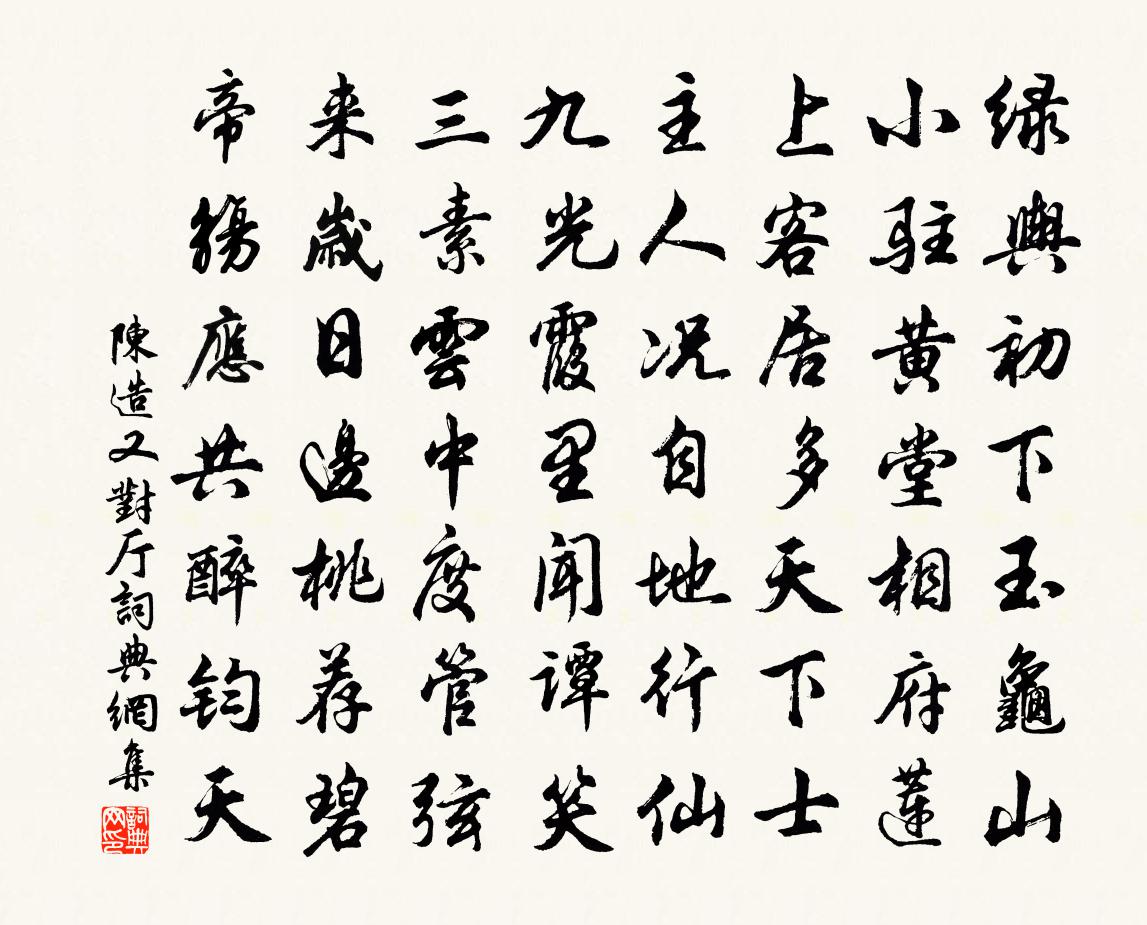 绿輿初下玉龜山
小駐黄堂相府蓮
上客居多天下士
主人况自地行仙
九光霞里聞譚笑
三素雲中度管弦
来歲日邊桃荐碧
帝觴應共醉鈞天
陳造又對厅詞典網集
詞典网印